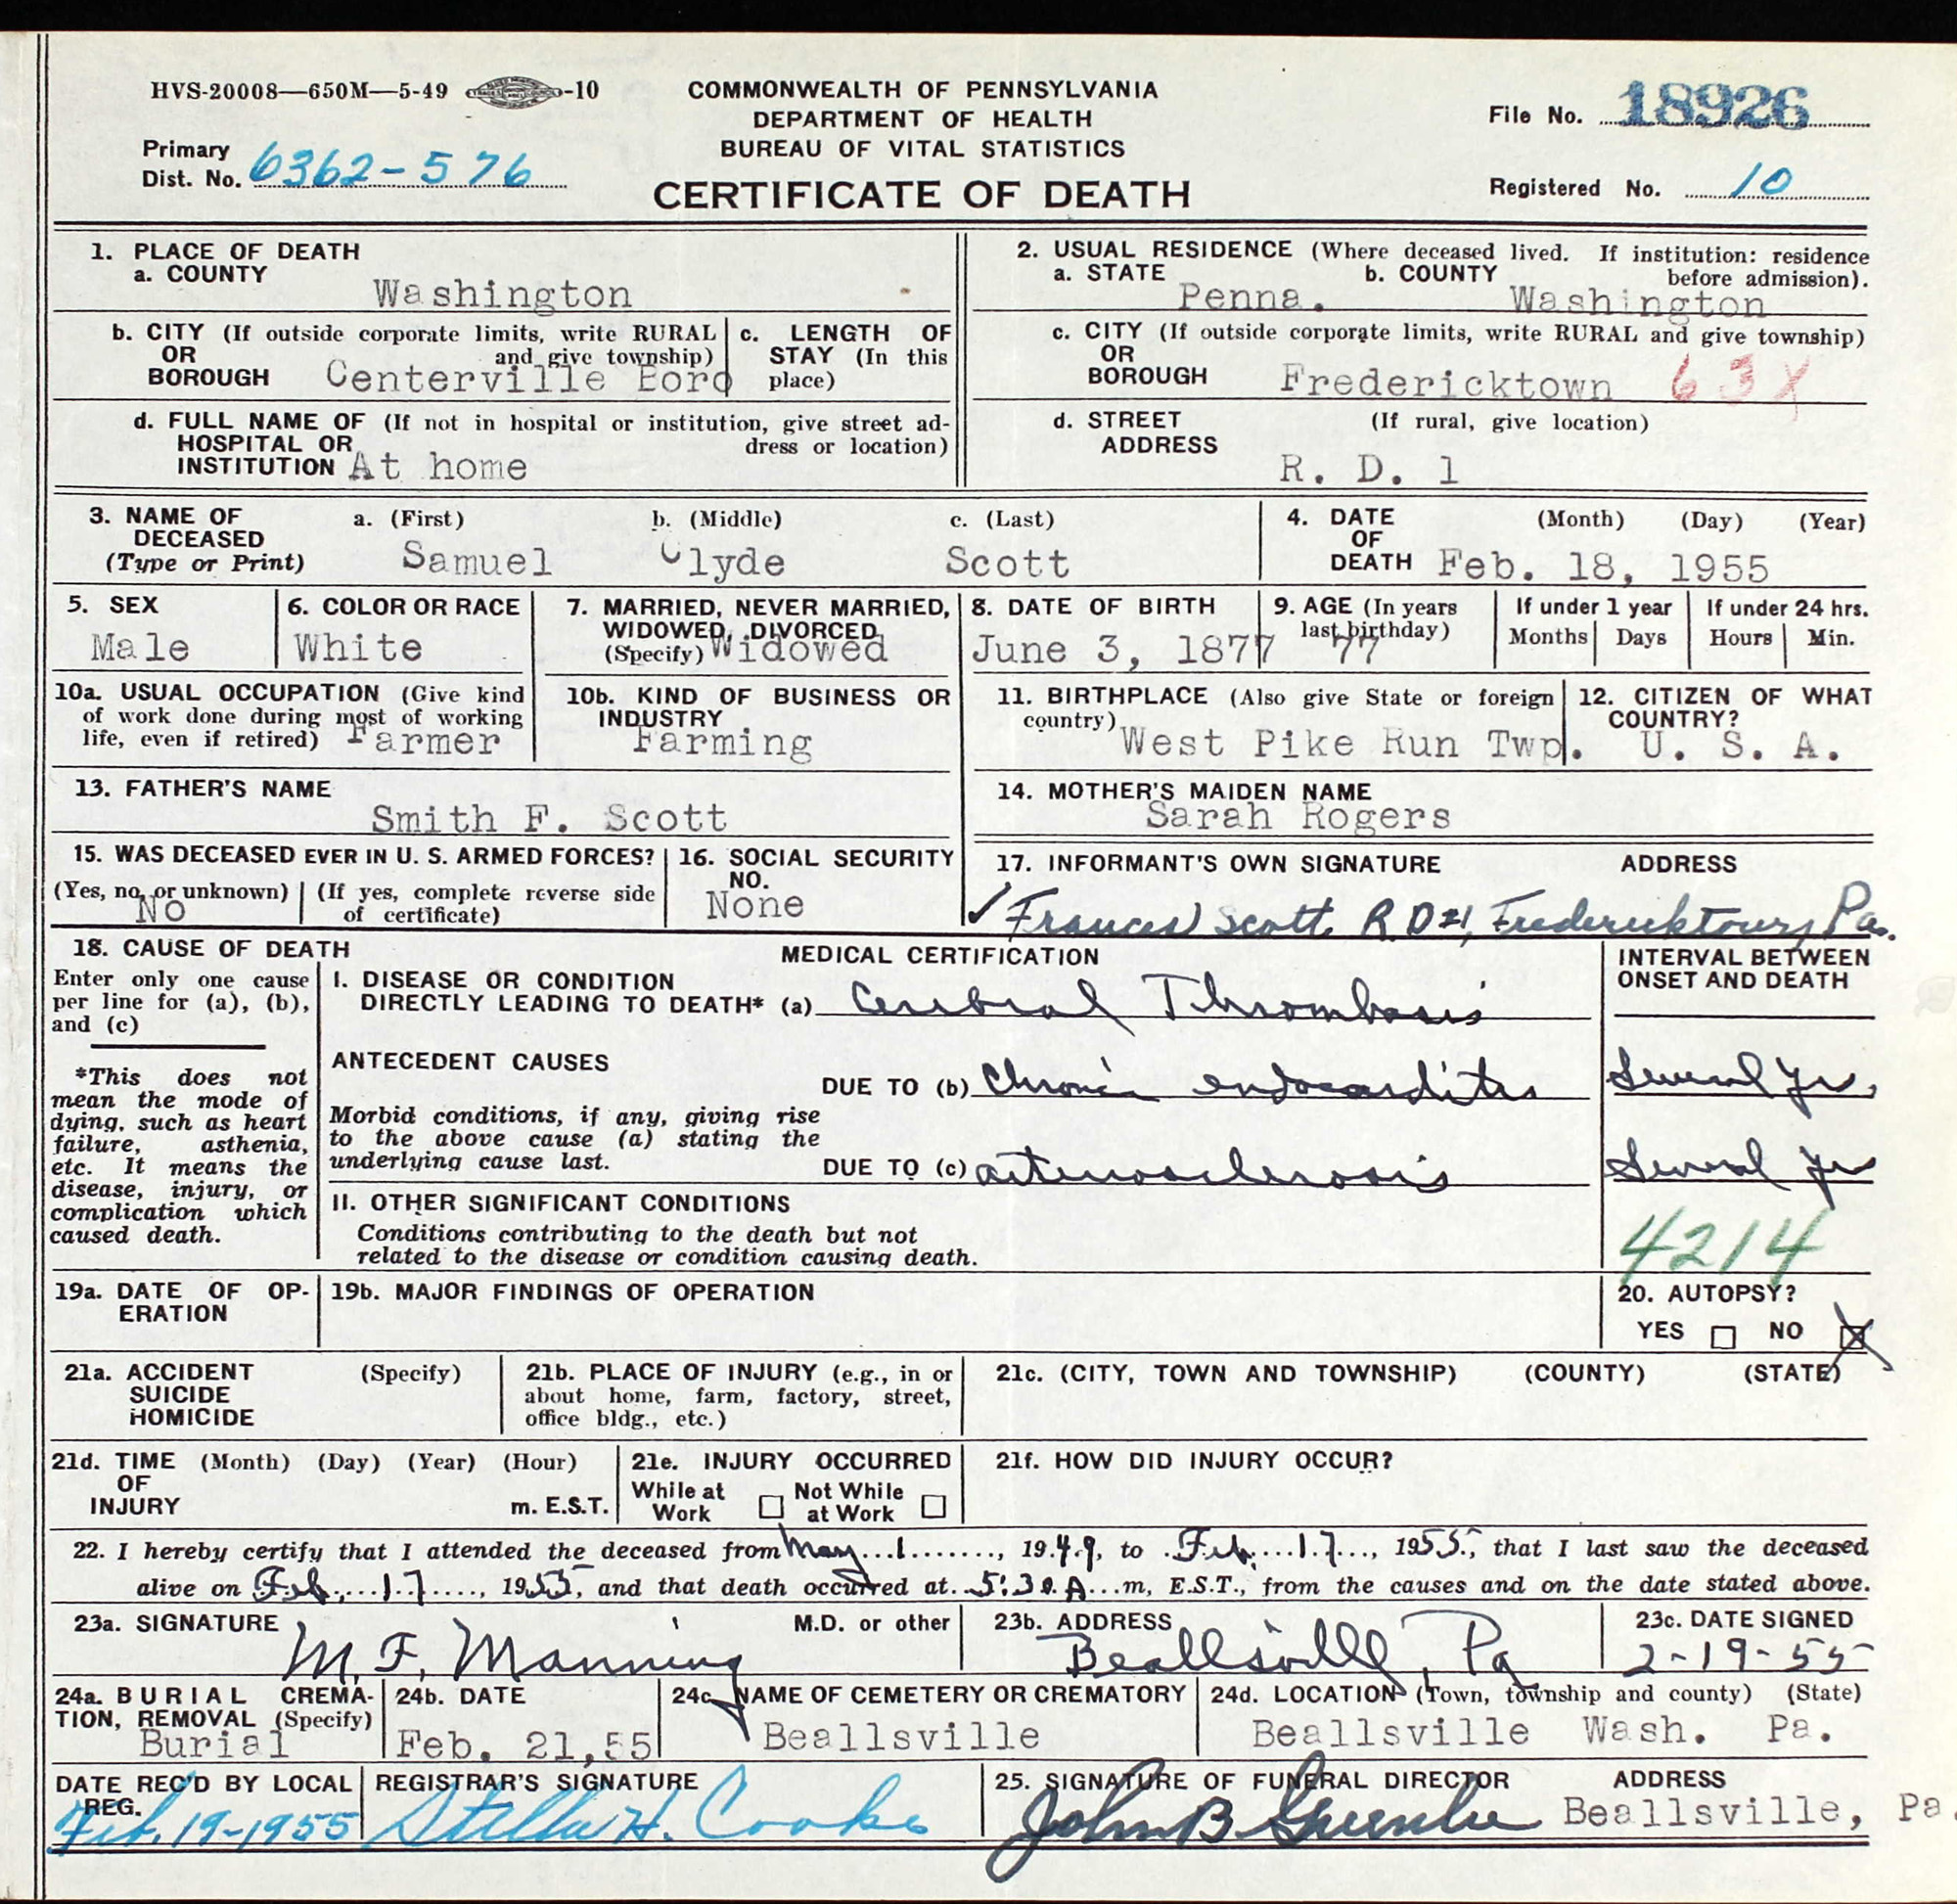 HVS-20008—650M—5-49 -10
COMMONWEALTH OF PENNSYLVANIA
DEPARTMENT OF HEALTH
BUREAU OF VITAL STATISTICS
CERTIFICATE OF DEATH
File No. 18926
Primary
Dist. No. 6362-576
Registered No. 10
1. PLACE OF DEATH
a. COUNTY
Washington
b. CITY (If outside corporate limits, write RURAL
OR and give township)
BOROUGH Centerville Boro
c. LENGTH OF
STAY (In this
place)
d. FULL NAME OF (If not in hospital or institution, give street ad-
HOSPITAL OR dress or location)
INSTITUTION At home
2. USUAL RESIDENCE (Where deceased lived. If institution: residence
a. STATE b. COUNTY before admission).
Penna. Washington
c. CITY (If outside corporate limits, write RURAL and give township)
OR
BOROUGH Fredericktown 63X
d. STREET (If rural, give location)
ADDRESS
R. D. 1
3. NAME OF a. (First) b. (Middle) c. (Last)
DECEASED
(Type or Print) Samuel Clyde Scott
4. DATE (Month) (Day) (Year)
OF
DEATH Feb. 18, 1955
5. SEX
Male
6. COLOR OR RACE
White
7. MARRIED, NEVER MARRIED,
WIDOWED, DIVORCED
(Specify) Widowed
8. DATE OF BIRTH
June 3, 1877
9. AGE (In years
last birthday)
77
If under 1 year
Months Days
If under 24 hrs.
Hours Min.
10a. USUAL OCCUPATION (Give kind
of work done during most of working
life, even if retired) Farmer
10b. KIND OF BUSINESS OR
INDUSTRY
Farming
11. BIRTHPLACE (Also give State or foreign
country)
West Pike Run Twp.
12. CITIZEN OF WHAT
COUNTRY?
U. S. A.
13. FATHER'S NAME
Smith F. Scott
14. MOTHER'S MAIDEN NAME
Sarah Rogers
15. WAS DECEASED EVER IN U. S. ARMED FORCES?
(Yes, no, or unknown) (If yes, complete reverse side
No of certificate)
16. SOCIAL SECURITY
NO.
None
17. INFORMANT'S OWN SIGNATURE ADDRESS
✓ Frances Scott R.D#1, Fredericktown, Pa.
18. CAUSE OF DEATH
Enter only one cause
per line for (a), (b),
and (c)
*This does not
mean the mode of
dying, such as heart
failure, asthenia,
etc. It means the
disease, injury, or
complication which
caused death.
MEDICAL CERTIFICATION
I. DISEASE OR CONDITION
DIRECTLY LEADING TO DEATH* (a) Cerebral Thrombosis
ANTECEDENT CAUSES
DUE TO (b) Chronic endocarditis
Morbid conditions, if any, giving rise
to the above cause (a) stating the
underlying cause last.
DUE TO (c) arteriosclerosis
II. OTHER SIGNIFICANT CONDITIONS
Conditions contributing to the death but not
related to the disease or condition causing death.
INTERVAL BETWEEN
ONSET AND DEATH
Several yrs.
Several yrs
4214
19a. DATE OF OP-
ERATION
19b. MAJOR FINDINGS OF OPERATION
20. AUTOPSY?
YES NO X
21a. ACCIDENT (Specify)
SUICIDE
HOMICIDE
21b. PLACE OF INJURY (e.g., in or
about home, farm, factory, street,
office bldg., etc.)
21c. (CITY, TOWN AND TOWNSHIP) (COUNTY) (STATE)
21d. TIME (Month) (Day) (Year) (Hour)
OF
INJURY m. E.S.T.
21e. INJURY OCCURRED
While at Not While
Work at Work
21f. HOW DID INJURY OCCUR?
22. I hereby certify that I attended the deceased from May 1, 1949, to Feb. 17, 1955, that I last saw the deceased
alive on Feb. 17, 1955, and that death occurred at 5:30 A m, E.S.T., from the causes and on the date stated above.
23a. SIGNATURE M.D. or other
M. F. Manning
23b. ADDRESS
Beallsville, Pa
23c. DATE SIGNED
2-19-55
24a. BURIAL CREMA-
TION, REMOVAL (Specify)
Burial
24b. DATE
Feb. 21,55
24c. NAME OF CEMETERY OR CREMATORY
Beallsville
24d. LOCATION (Town, township and county) (State)
Beallsville Wash. Pa.
DATE REC'D BY LOCAL
REG.
Feb. 19-1955
REGISTRAR'S SIGNATURE
Stella H. Cooke
25. SIGNATURE OF FUNERAL DIRECTOR ADDRESS
John B Greenlee Beallsville, Pa.